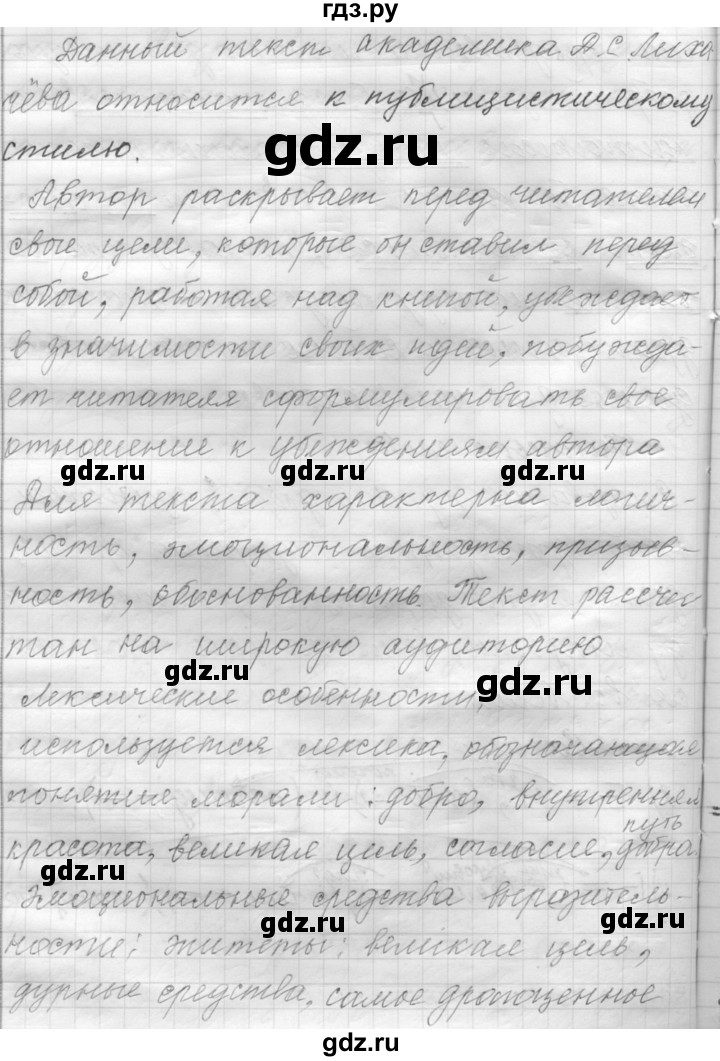 гдз.ру
Данный текст академика Д.С. Лиха
чёва относится к публицистическому
стилю.
gdz.ru
Автор раскрывает перед читателем
свои цели, которые он ставил перед
собой, работая над книгой, убеждает
в значимости своих идей, побужда-
ет читателя сформулировать свое
отношение к убеждениям автора
gdz.ru gdz.ru gdz.ru
Для текста характерна логич-
ность, эмоциональность, призыв-
ность, обоснованность. Текст рассчи
тан на широкую аудиторию
gdz.ru gdz.ru
Лексические особенности,
используется лексика, обозначающая
понятия морали: добро, внутренняя
путь
красота, великая цель, согласие, добра
gdz.ru
Эмоциональные средства выразитель-
gdz.ru gdz.ru
ности: эпитеты: великая цель,
дурные средства, самое драгоценное
gdz.ru